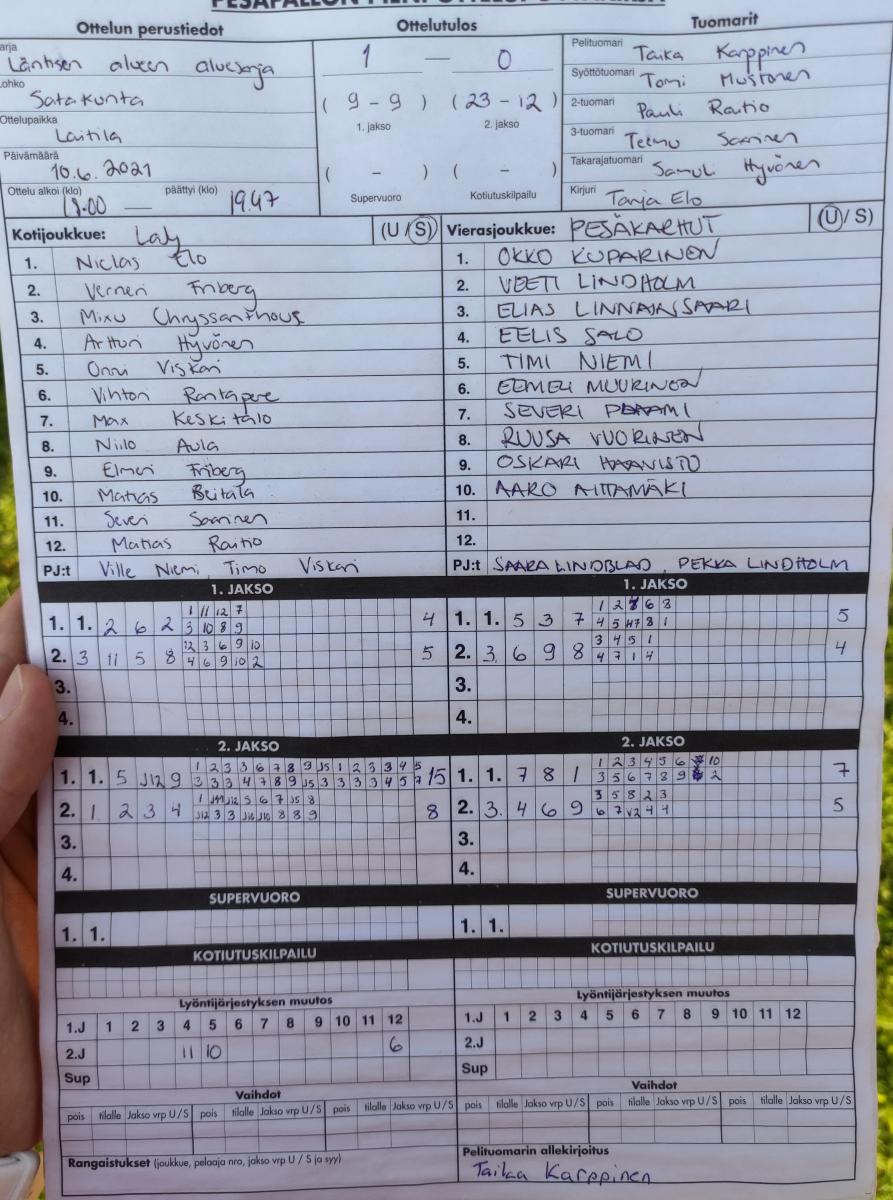 PESÄPALLON PIENI OTTELUPÖYTÄKIRJA
Ottelun perustiedot
Ottelutulos
Tuomarit
arja
Läntisen alueen aluesarja
ohko
Satakunta
Ottelupaikka
Laitila
Päivämäärä
10.6.2021
Ottelu alkoi (klo) päättyi (klo)
18.00 — 19.47
1 — 0
( 9 - 9 ) ( 23 - 12 )
1. jakso 2. jakso
( - ) ( - )
Supervuoro Kotiutuskilpailu
Pelituomari Taika Karppinen
Syöttötuomari Tomi Mustonen
2-tuomari Pauli Raitio
3-tuomari Teemu Saarinen
Takarajatuomari Samuli Hyvönen
Kirjuri Tanja Elo
Kotijoukkue: Laly (U / S)
1. Niclas Elo
2. Verneri Friberg
3. Mixu Chryssanthou
4. Artturi Hyvönen
5. Onni Viskari
6. Vihtori Rantapere
7. Max Keskitalo
8. Niilo Aula
9. Elmeri Friberg
10. Matias Beitala
11. Severi Saarinen
12. Matias Raitio
PJ:t Ville Niemi, Timo Viskari
Vierasjoukkue: PESÄKARHUT (U / S)
1. OKKO KUPARINEN
2. VEETI LINDHOLM
3. ELIAS LINNAINSAARI
4. EELIS SALO
5. TIMI NIEMI
6. EEMELI MUURINEN
7. SEVERI
8. RUUSA VUORINEN
9. OSKARI HAAVISTO
10. AARO AITTAMÄKI
11.
12.
PJ:t SAARA LINDBLAD, PEKKA LINDHOLM
1. JAKSO
1. 1. 2 6 2 1 11 12 7 4
3 10 8 9
2. 3 11 5 8 12 3 6 9 10 5
4 6 9 10 2
3.
4.
1. JAKSO
1. 1. 5 3 7 1 2 6 8 5
4 5 8 1
2. 3. 6 9 8 3 4 5 1 4
4 7 1 4
3.
4.
2. JAKSO
1. 1. 5 J12 9 1 2 3 3 6 7 8 9 J5 1 2 3 3 4 5 15
3 3 3 4 7 8 9 J5 3 3 3 3 4 5 7
2. 1 2 3 4 1 J11 J12 5 6 7 J5 8 8
J12 3 3 J10 J10 8 8 9
3.
4.
2. JAKSO
1. 1. 7 8 1 1 2 3 4 5 6 10 7
3 5 6 7 8 9 2
2. 3. 4 6 9 3 5 8 2 3 5
6 7 V2 4 4
3.
4.
SUPERVUORO
1. 1.
SUPERVUORO
1. 1.
KOTIUTUSKILPAILU
KOTIUTUSKILPAILU
Lyöntijärjestyksen muutos
1.J 1 2 3 4 5 6 7 8 9 10 11 12
2.J 11 10 6
Sup
Lyöntijärjestyksen muutos
1.J 1 2 3 4 5 6 7 8 9 10 11 12
2.J
Sup
Vaihdot
pois tilalle Jakso vrp U / S pois tilalle Jakso vrp U / S pois tilalle Jakso vrp U / S
Vaihdot
pois tilalle Jakso vrp U / S pois tilalle Jakso vrp U / S pois tilalle Jakso vrp U / S
Rangaistukset (joukkue, pelaaja nro, jakso vrp U / S ja syy)
Pelituomarin allekirjoitus
Taika Karppinen